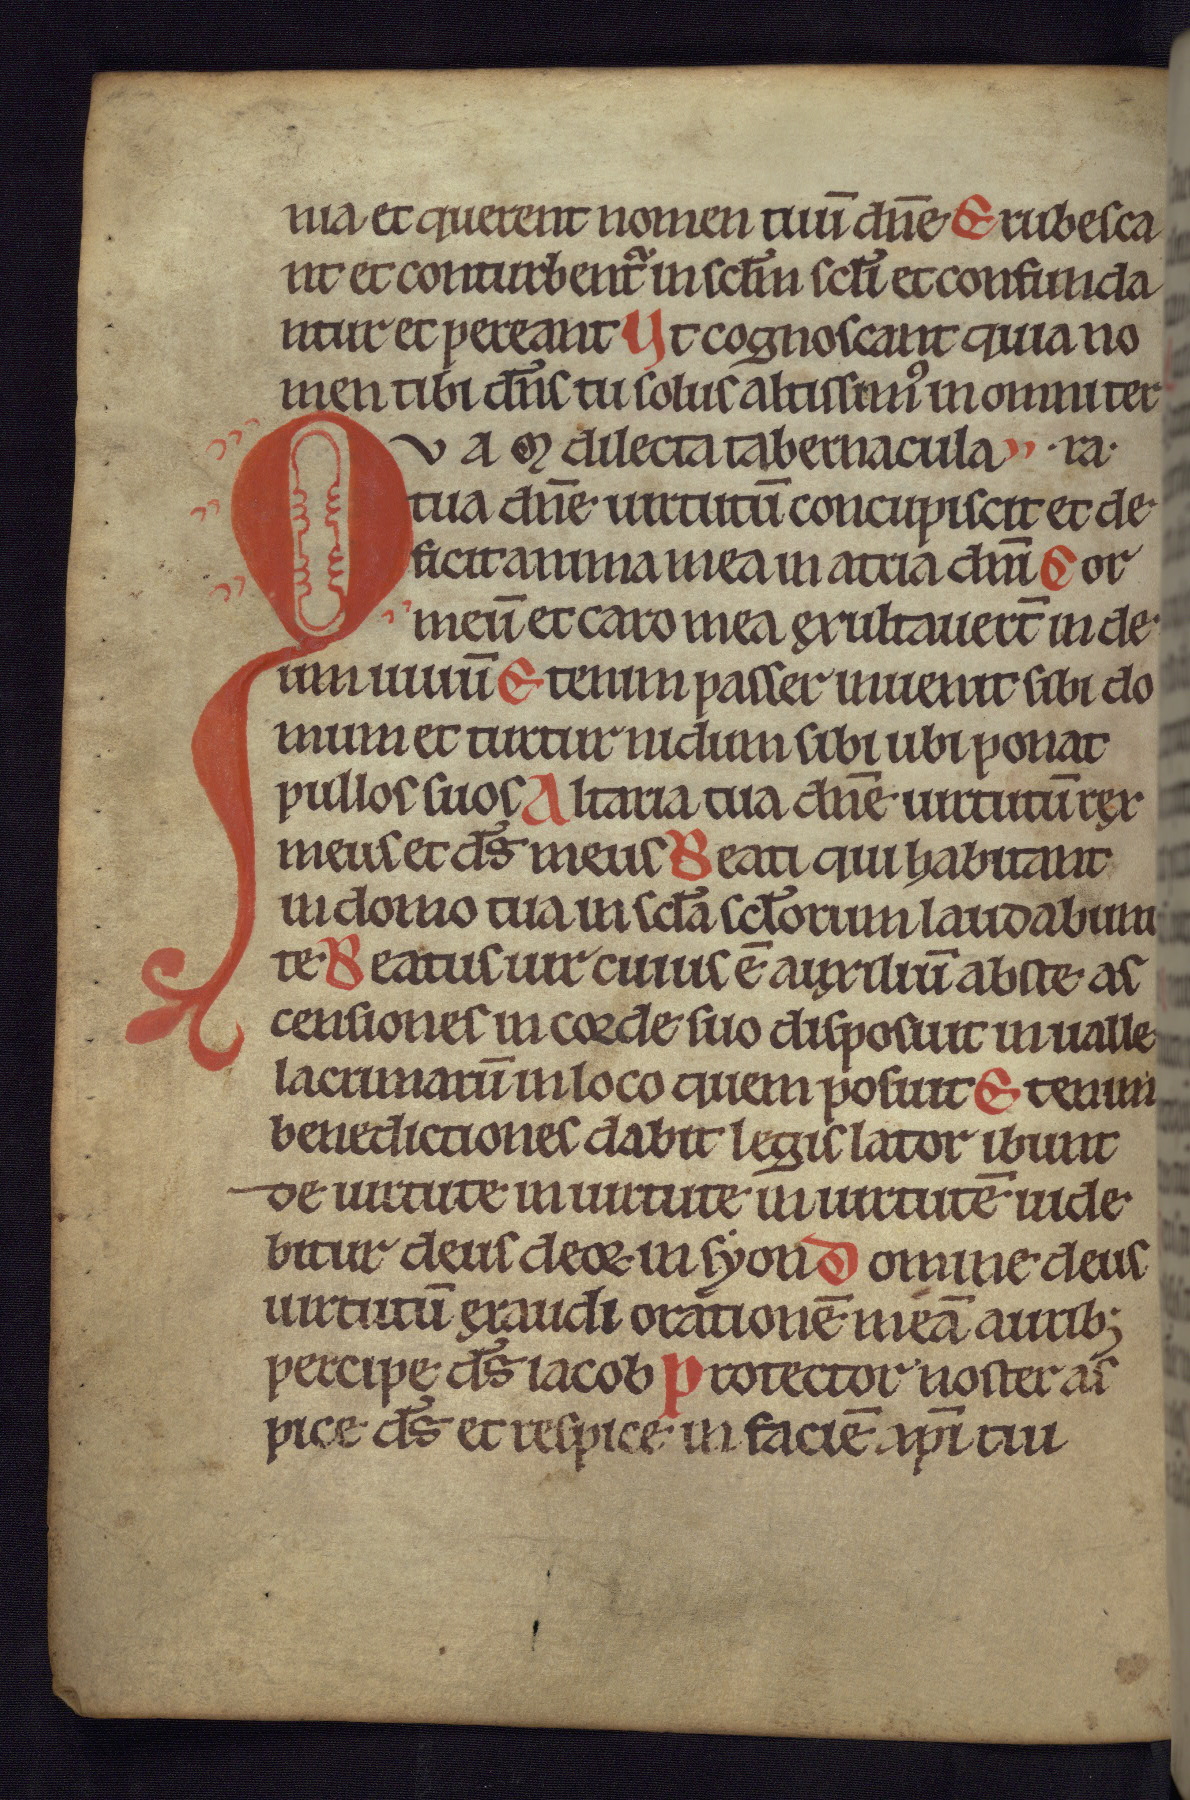 nia et querent nomen tuū dn̄e Erubesca
nt et conturbent᷑ in sclm̄ scl̄i et confunda
ntur et pereant Ut cognoscant quia no
men tibi dn̄s tu solus altissimꝰ in omni ter
QUAM dilecta tabernacula ·ra·
tua dn̄e uirtutū concupiscit et de
ficit anima mea in atria dn̄i Cor
meū et caro mea exultauer̄t in de
um uiuū Etenim passer inuenit sibi do
mum et turtur nidum sibi ubi ponat
pullos suos Altaria tua dn̄e uirtutū rex
meus et ds̄ meus Beati qui habitant
in domo tua in scl̄a scl̄orum laudabunt
te Beatus uir cuius ē auxiliū abste as
censiones in corde suo disposuit in ualle
lacrimarū in loco quem posuit Etenim
benedictiones dabit legislator ibunt
de uirtute in uirtute in uirtutē uide
bitur deus deoꝝ in syon Domine deus
uirtutū exaudi orationē meā aurib;
percipe ds̄ iacob Protector noster as
pice ds̄ et respice in faciē xp̄i tui